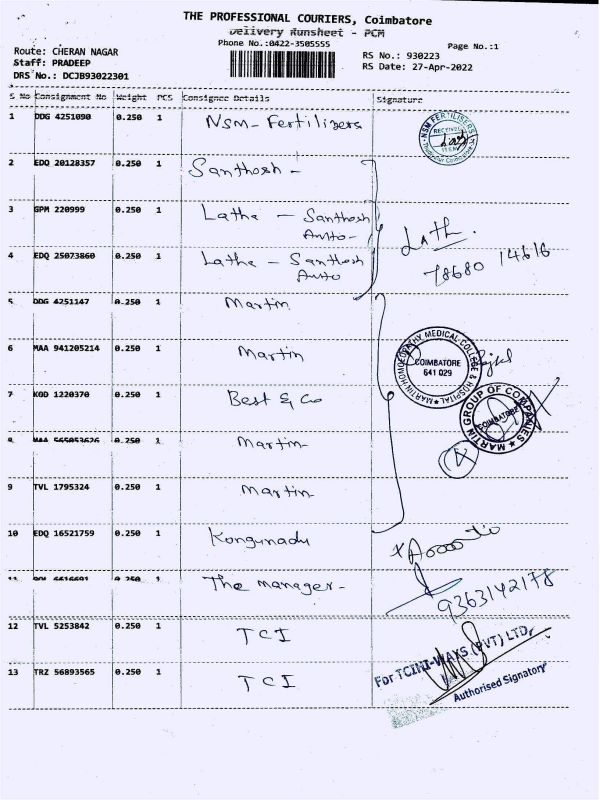 THE PROFESSIONAL COURIERS, Coimbatore
Delivery Runsheet - PCM
Phone No.:0422-3505555
Page No.:1
Route: CHERAN NAGAR
RS No.: 930223
Staff: PRADEEP
RS Date: 27-Apr-2022
DRS No.: DCJB93022301
S No Consignment No Weight PCS Consignee Details Signature
1 DDG 4251090 0.250 1 NSM - Fertilizers
NSM FERTILISERS
2 EDQ 20128357 0.250 1 Santhosh -
3 GPM 220999 0.250 1 Latha - Santhosh
Auto -
Lath.
4 EDQ 25073860 0.250 1 Latha - Santhosh
Auto
78680 14616
5 DDG 4251147 0.250 1 Martin
6 MAA 941205214 0.250 1 Martin
MARTIN HOMOEOPATHY MEDICAL COLLEGE & HOSPITAL
COIMBATORE
641 029
7 KOD 1220370 0.250 1 Best & Co
MARTIN GROUP OF COMPANIES
COIMBATORE
8 MAA 565053626 0.250 1 Martin
9 TVL 1795324 0.250 1 Martin
10 EDQ 16521759 0.250 1 Kongunadu
11 0.250 1 The manager -
9363142178
12 TVL 5253842 0.250 1 TCI
13 TRZ 56893565 0.250 1 TCI
For TCINI-WAXS (PVT) LTD.
Authorised Signatory